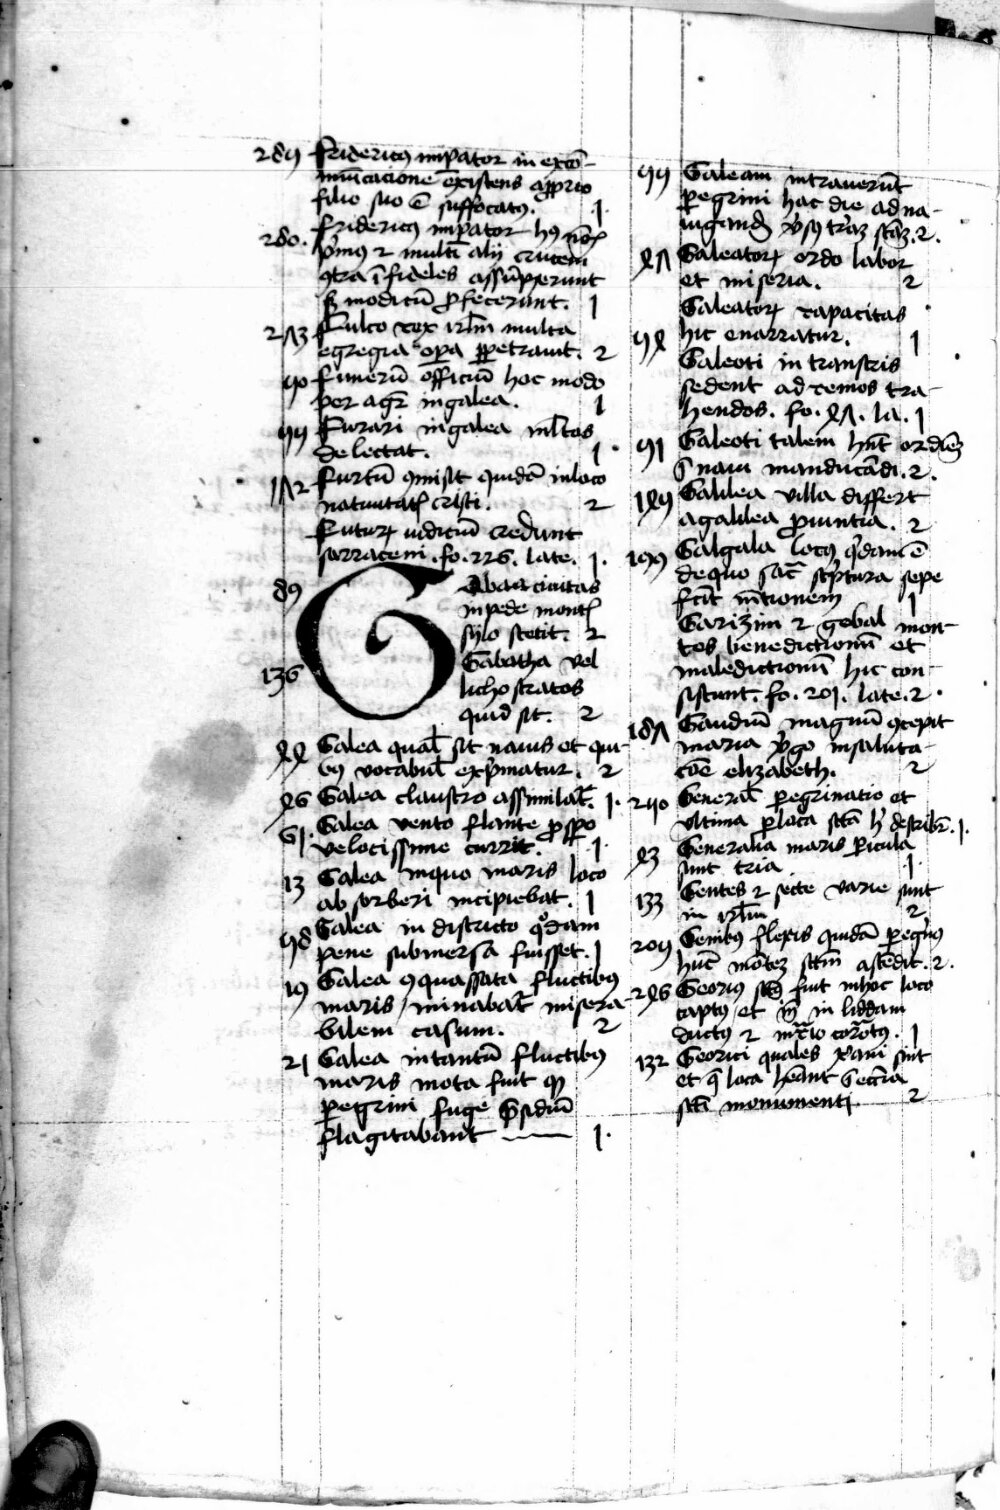 289 Fridericus imperator in exco-
municacione existens a proprio
filio suo est suffocatus. 1.
280. Fridericus imperator huius nominis
primus et multi alii crucem
contra infideles assumpserunt
sed modicum profecerunt. 1
273 Fulco rex ierusalem multa
egregia opera perpetravit. 2
40 Funerum officium hoc modo
per agitur in galea. 1
44 Furari in galea multos
delectat. 1.
172 Furtum commisit quidam in loco
nativitatis cristi. 2
Futurum iudicium credunt
sarraceni. fo. 226. late. 1.
89 Gabaa civitas
in pede montis
sylo stetit. 2
136 Gabatha vel
lichostratos
quid sit. 2
Galea qualis sit navis et qui-
bus vocabulis exprimatur. 2
Galea claustro assimilatur. 1.
61. Galea vento flante prospero
velocissime currit. 1.
13 Galea in quo maris loco
absorberi incipiebat. 1
48 Galea in districto quodam
pene submersa fuisset. 1
19 Galea conquassata fluctibus
maris, minabatur misera-
bilem casum. 2
21 Galea in tantum fluctibus
maris mota fuit quod
peregrini fuge presidium
flagitabant 1.
44 Galeam intraverunt
peregrini hac die ad na-
vigandum versus terram sanctam. 2.
Galeatorum ordo labor
et miseria. 2
Galeatorum capacitas
hic enarratur. 1
Galeoti in transtris
sedent ad remos tra-
hendos. fo. la. 1
41 Galeoti talem habent ordinem
in navi manducandi. 2.
Galilea villa differt
a galilea provintia. 2
199 Galgala locus quidam est
de quo sacra scriptura sepe
facit mentionem 1
Garizim et gebal mon-
tes benedictionum et
maledictionum hic con-
sistunt. fo. 201. late. 2.
187 Gaudium magnum concepit
maria virgo in saluta-
tione elizabeth. 2
240 Generalis peregrinatio et
ultima per loca sancta hic describitur. 1.
Generalia maris pericula
sunt tria. 1.
133 Gentes et secte varie sunt
in ierusalem 2
209 Genibus flexis quidam peregrinus
hunc montem sanctum ascendit. 2.
Georius sanctus fuit in hoc loco
captus et in liddam
ductus et martirio coronatus. 1
132 Georici quales christiani sint
et que loca habeant in ecclesia
sancti monumenti 2